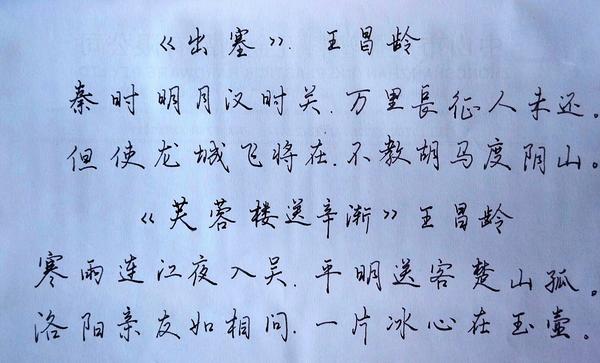 《出塞》. 王昌龄
秦时明月汉时关.万里長征人未还。
但使龙城飞将在.不教胡马度阴山。
《芙蓉楼送辛渐》王昌龄
寒雨连江夜入吴.平明送客楚山孤。
洛阳亲友如相问.一片冰心在玉壶。